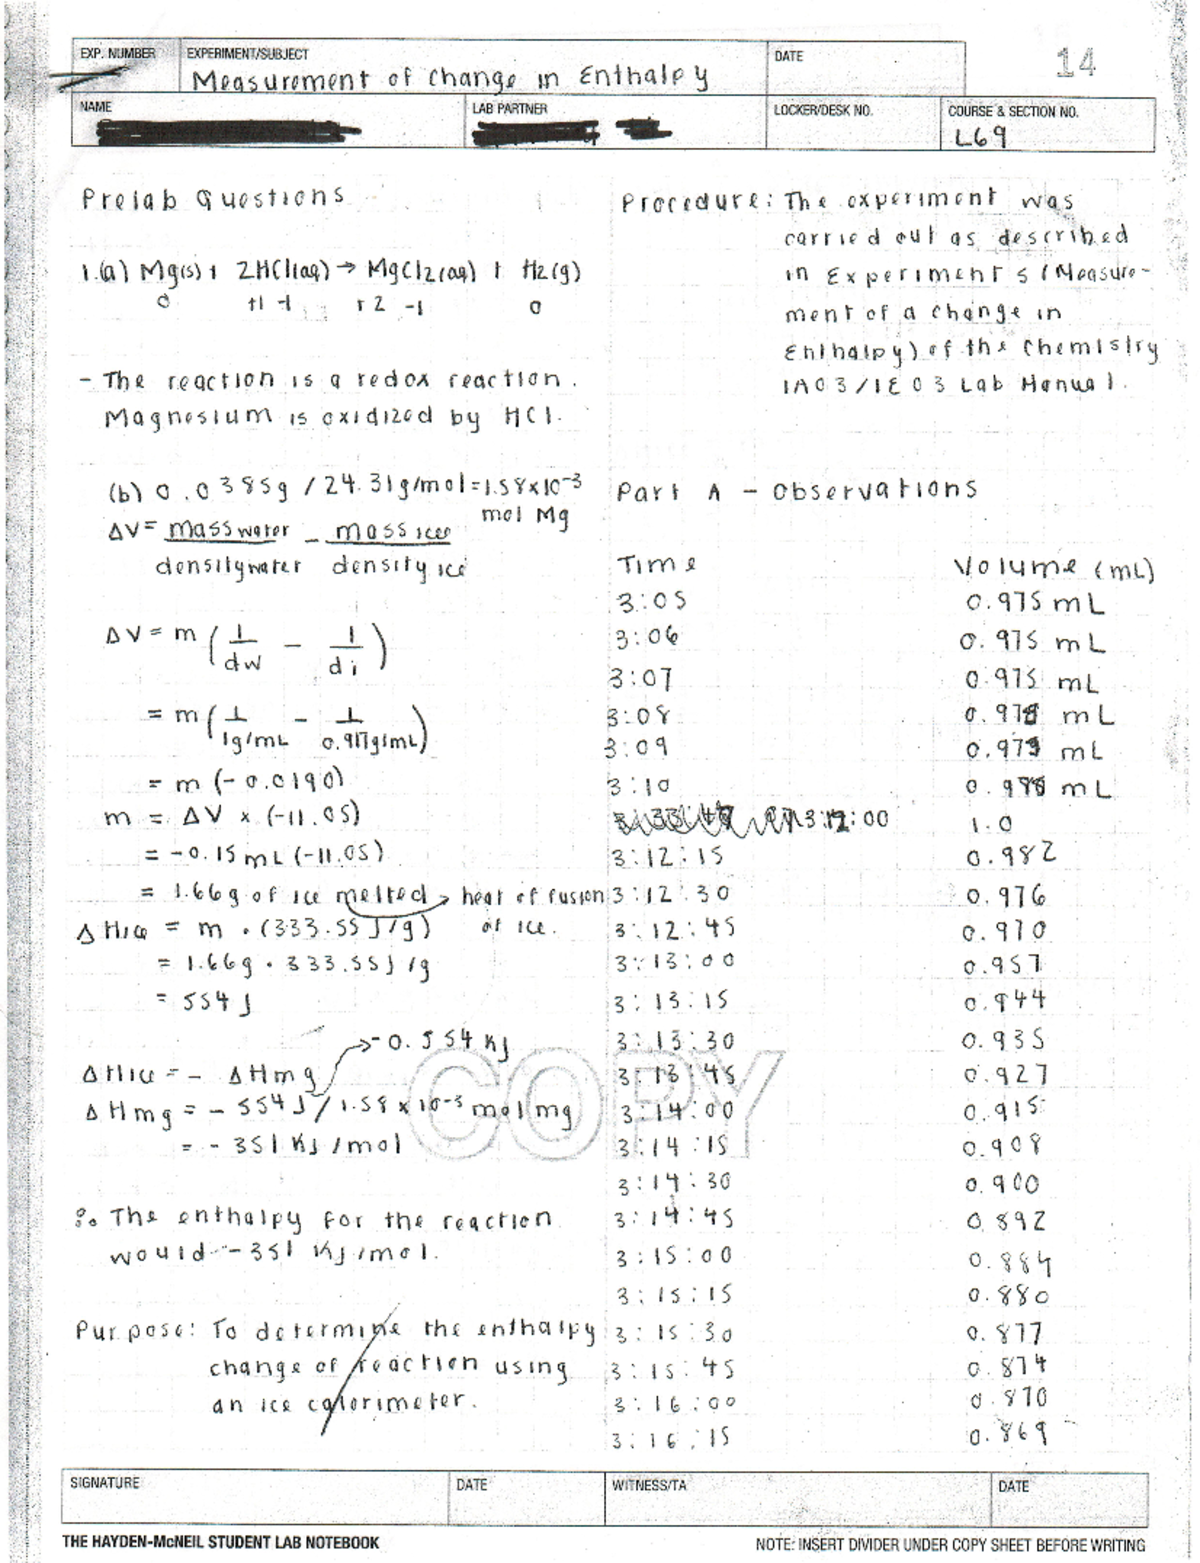 EXP. NUMBER
EXPERIMENT/SUBJECT
Measurement of Change in Enthalpy
DATE
14
NAME
LAB PARTNER
LOCKER/DESK NO.
COURSE & SECTION NO.
L69
Prelab Questions
1.(a) Mg(s) + 2HCl(aq) → MgCl2(aq) + H2(g)
0 +1 -1 +2 -1 0
- The reaction is a redox reaction.
Magnesium is oxidized by HCl.
(b) 0.0385g / 24.31g/mol = 1.58x10-3
mol Mg
ΔV = mass water - mass ice
density water density ice
ΔV = m (1/dw - 1/di)
= m (1/1g/mL - 1/0.917g/mL)
= m (-0.0190)
m = ΔV x (-11.05)
= -0.15 mL (-11.05)
= 1.66g of ice melted → heat of fusion
of ice.
ΔHice = m · (333.55 J/g)
= 1.66g · 333.55J/g
= 554 J
→ -0.554 KJ
ΔHice = - ΔHmg
ΔHmg = - 554J / 1.58 x 10-3 mol mg
= - 351 KJ /mol
∴ The enthalpy for the reaction
would -351 KJ/mol.
Purpose: To determine the enthalpy
change of reaction using
an ice calorimeter.
Procedure: The experiment was
carried out as described
in Experiment 5 (Measure-
ment of a change in
Enthalpy) of the Chemistry
1A03/1E03 Lab Manual.
Part A - Observations
Time Volume (mL)
3:05 0.975 mL
3:06 0.975 mL
3:07 0.975 mL
3:08 mL
3:09 mL
3:10 mL
3:12:00 1.0
3:12:15 0.982
3:12:30 0.976
3:12:45 0.970
3:13:00 0.957
3:13:15 0.944
3:13:30 0.935
3:13:45 0.927
3:14:00 0.915
3:14:15 0.908
3:14:30 0.900
3:14:45 0.892
3:15:00 0.884
3:15:15 0.880
3:15:30 0.877
3:15:45 0.874
3:16:00 0.870
3:16:15 0.869
COPY
SIGNATURE
DATE
WITNESS/TA
DATE
THE HAYDEN-McNEIL STUDENT LAB NOTEBOOK
NOTE: INSERT DIVIDER UNDER COPY SHEET BEFORE WRITING